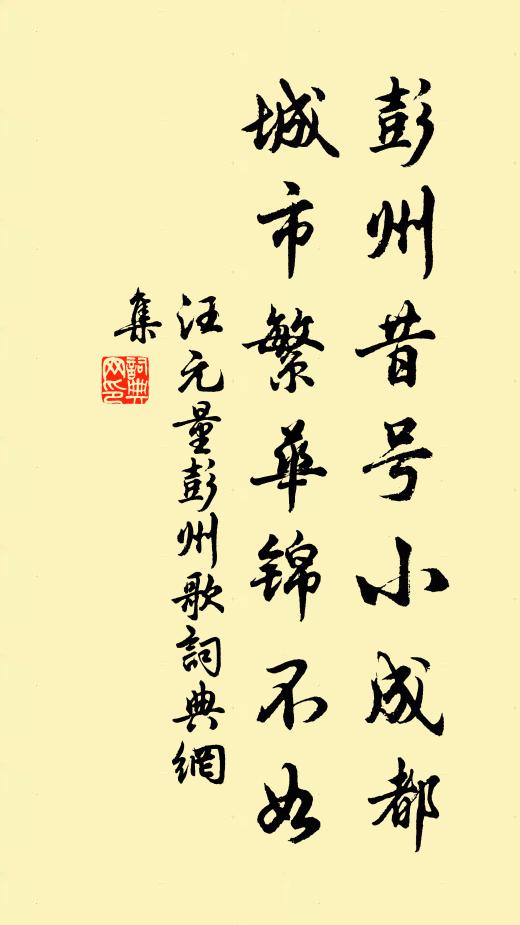 彭州昔号小成都
城市繁华锦不如
汪元量彭州歌詞典網
集
詞典網印